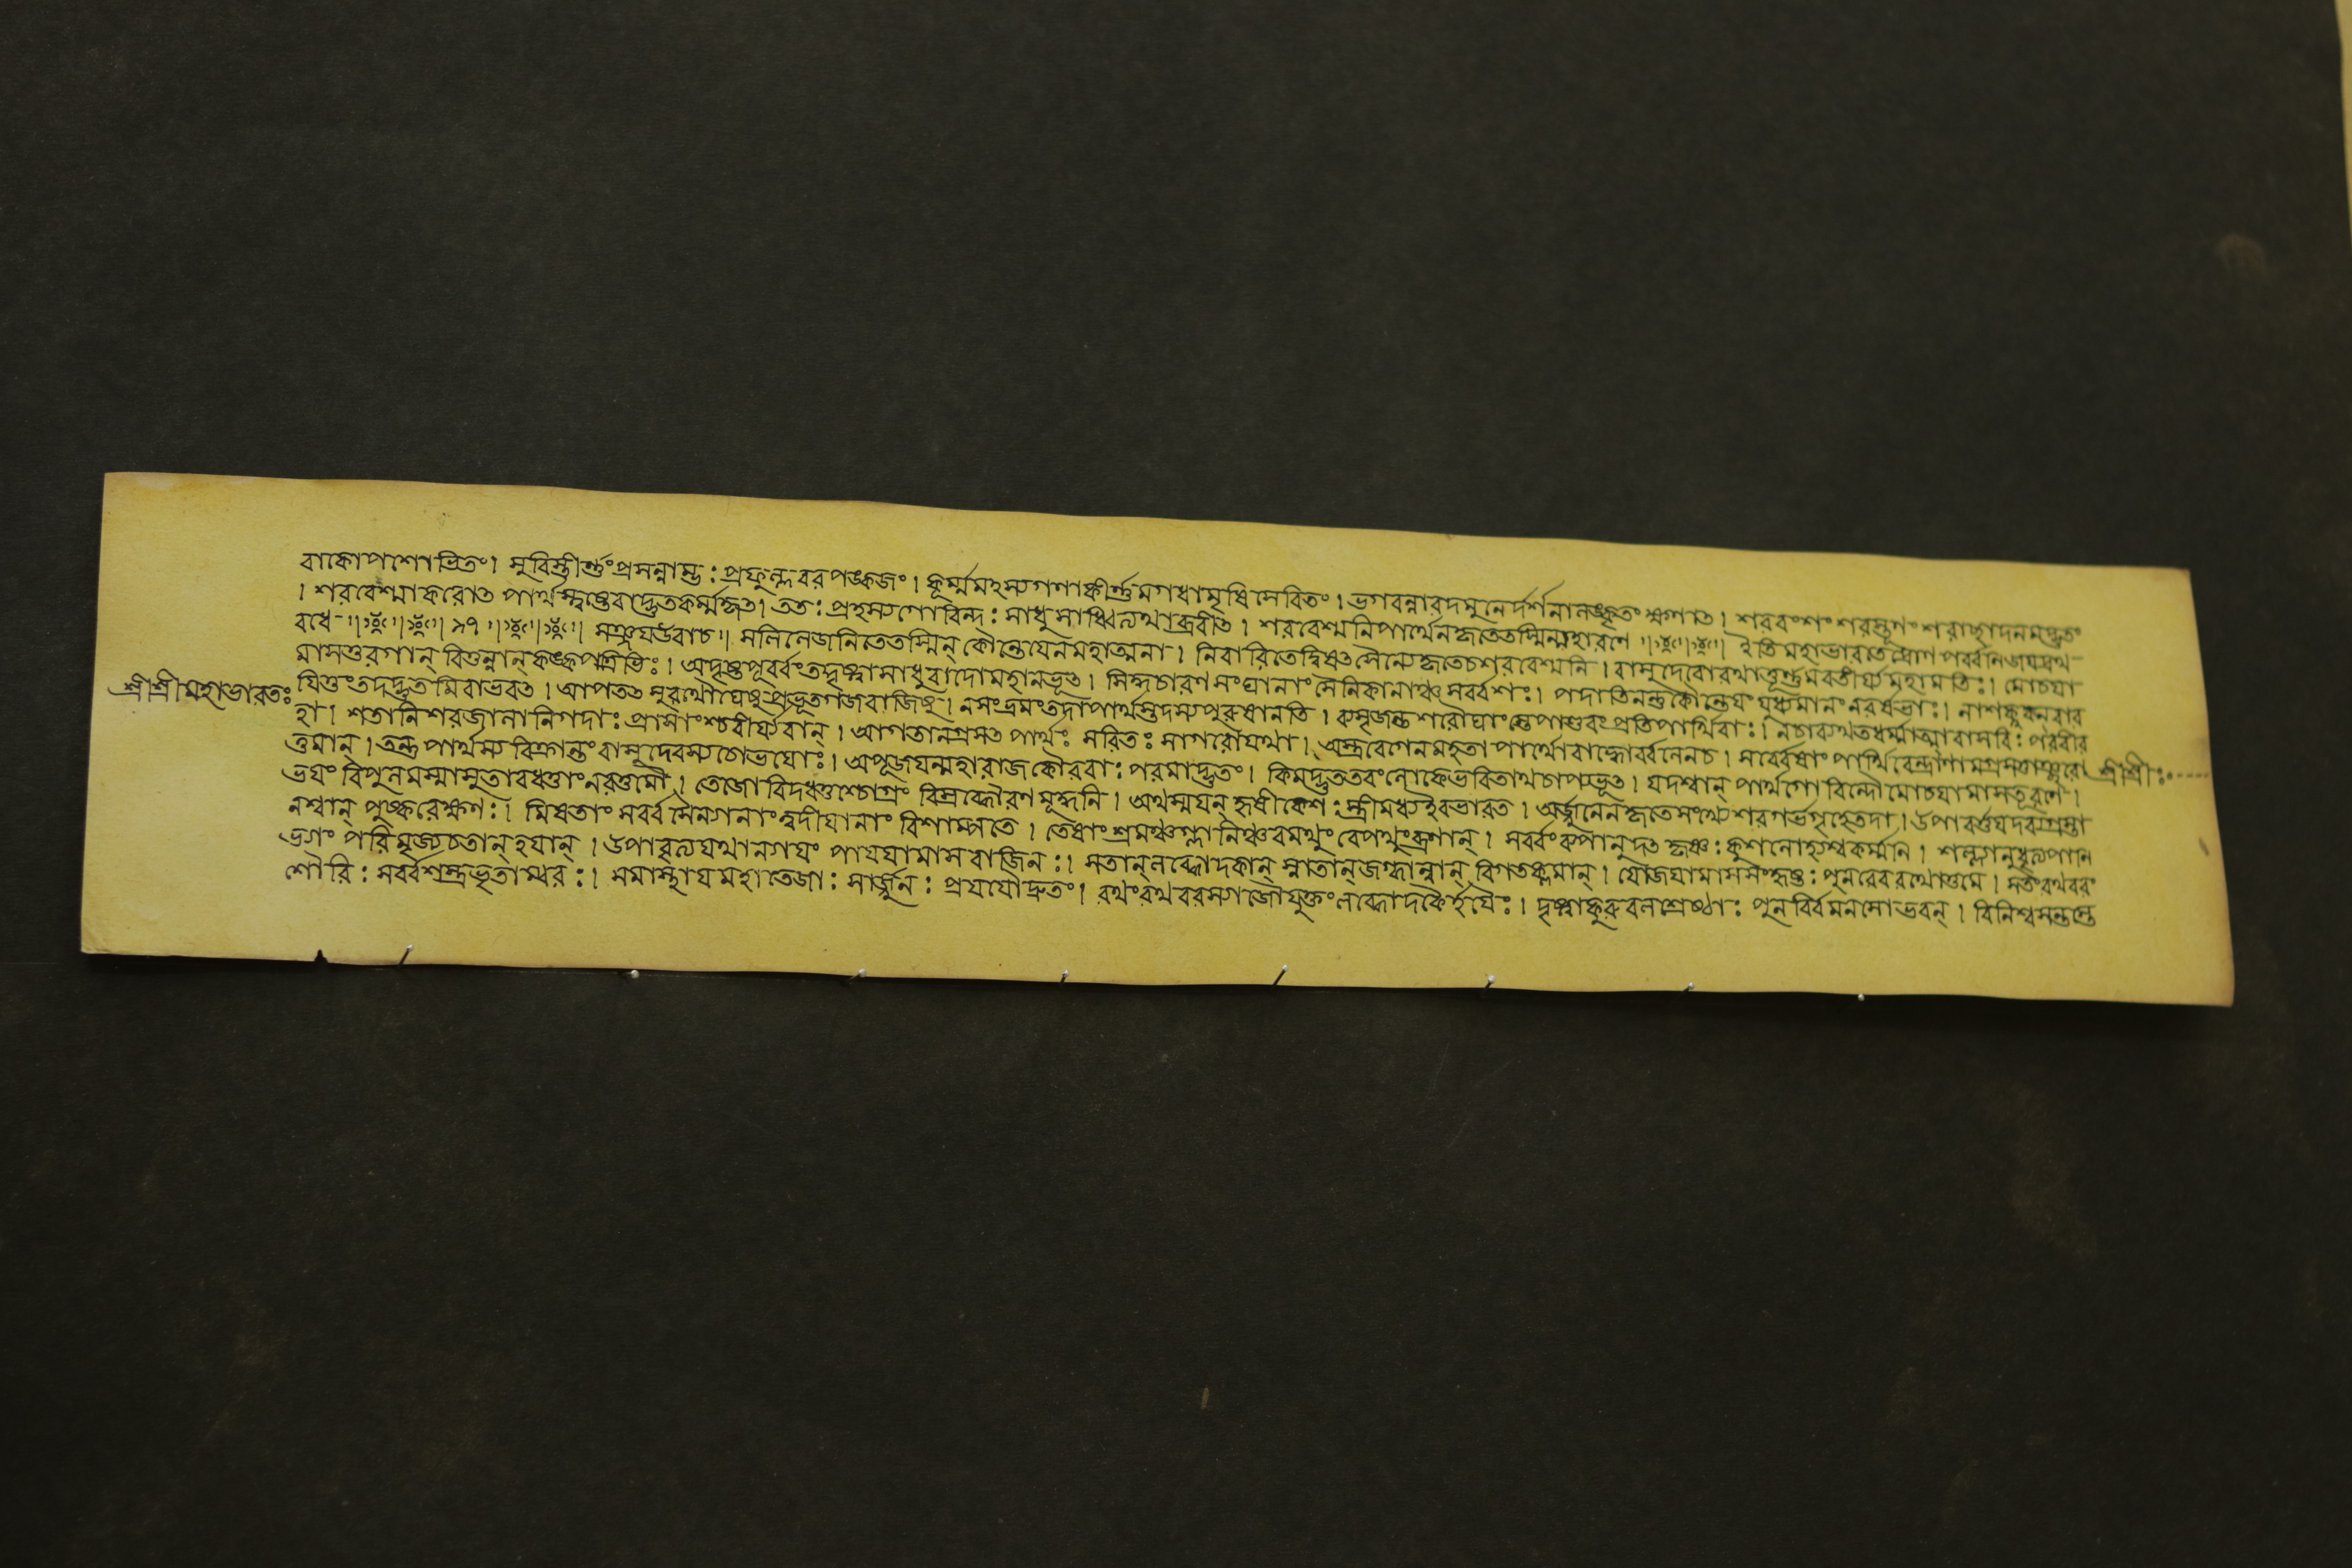 বাকোপশোভিতং। সুবিস্তীর্ণংপ্রসন্নাম্ভ: প্রফুল্লবরপঙ্কজং। কূর্ম্মমৎস্যগণাকীর্ণমগধামৃষিসেবিতং। ভগবন্নারদমুনের্দর্শনালঙ্কৃতং ক্ষণাৎ। শরবংশং শরস্থূণং শরাচ্ছাদনমদ্ভুতং
। শরবেশ্মাকরোৎ পার্থস্ত্বষ্টেবাদ্ভুতকর্ম্মকৃৎ। ততঃ প্রহস্যগোবিন্দ: সাধুসাধ্বিত্যথাব্রবীৎ। শরবেশ্মনিপার্থেনকৃতেতস্মিন্মহারণে ॥ ইতিমহাভারতেদ্রোণপর্ব্বনিজযদ্রথ
বধে ॥ ৯৭ ॥ সঞ্জযউবাচ॥ সলিলেজনিতেতস্মিন্ কৌন্তেযেনমহাত্মনা। নিবারিতেদ্বিষৎসৈন্যেকৃতেচশরবেশ্মনি। বাসুদেবোরথাত্তূর্ণমবতীর্য্যমহামতিঃ। মোচযা
মাসতুরগান্ বিতুন্নান্ কঙ্কপত্রিভিঃ। অদৃষ্টপূর্ব্বংতদ্দৃষ্ট্বাসাধুবাদোমহানভূৎ। সিদ্ধচারণসংঘানাং সৈনিকানাঞ্চসর্ব্বশঃ। পদাতিনন্তুকৌন্তেযং যুধ্যমানংনরর্ষভাঃ। নাশক্নুবনবার
শ্রীশ্রীমহাভারতঃ
যিতুংতদদ্ভুতমিবাভবৎ। আপতৎসুরথৌঘেষুপ্রভূতগজবাজিষু। নসংভ্রমংতদাপার্থস্তদস্যপুরুষানতি। ব্যসৃজন্তশরৌঘাংস্তেপাণ্ডবংপ্রতিপার্থিবাঃ। নচাব্যথতধর্ম্মাত্মাবাসবি: পরবীর
হা। শতানিশরজালানিগদাঃ প্রাসাংশ্চবীর্য্যবান্। আগতানগ্রসৎ পার্থঃ সরিতঃ সাগরোযথা। অস্ত্রবেগেনমহতা পার্থোবাহ্বোর্ব্বলেনচ। সর্ব্বেষাং পার্থিবেন্দ্রাণামগ্রসত্তাঞ্ছরো
শ্রীশ্রীঃ
ত্তমান্। তত্তু পার্থস্য বিক্রান্তং বাসুদেবস্যচোভযোঃ। অপূজযন্মহারাজকৌরবাঃ পরমাদ্ভুতং। কিমদ্ভুততরংলোকেভবিতাথচাপ্যভূৎ। যদশ্বান্ পার্থগোবিন্দৌমোচযামাসতূরণে।
ভযং বিপুলমস্মাসুতাবধত্তাংনরোত্তমৌ। তেজোবিদধতুশ্চোগ্রং বিস্রব্ধৌরণমূর্দ্ধনি। অথস্মযন্ হৃষীকেশ: স্ত্রীমধ্যইবভারত। অর্জ্জুনেনকৃতেসংখ্যেশরগর্ভগৃহেতদা। উপাবর্ত্তযদব্যগ্রস্তা
নশ্বান্ পুষ্করেক্ষণঃ। মিষতাং সর্ব্বসৈন্যানাং ত্বদীযানাং বিশাম্পতে। তেষাং শ্রমঞ্চগ্লানিঞ্চবমথুং বেপথুংব্রণান্। সর্ব্বংব্যপানুদৎ কৃষ্ণ: কুশলোহ্যশ্বকর্ম্মনি। শল্যানুদ্ধৃত্যপানি
ভ্যাং পরিমৃজ্যচতান্ হযান্। উপাবৃত্যযথান্যাযং পাযযামাস বাজিনঃ। সতান্লব্ধোদকান্ স্নাতান্জগ্ধান্নান্ বিগতক্লমান্। যোজযামাসসংহৃষ্ট: পুনরেবরথোত্তমে। সতংরথবরং
শৌরি: সর্ব্বশস্ত্রভৃতাম্বরঃ। সমাস্থাযমহাতেজা: সার্জ্জুন: প্রযযৌদ্রুতং। রথংরথবরস্যাজৌযুক্তংলব্ধোদকৈর্হযৈঃ। দৃষ্ট্বাকুরুবলশ্রেষ্ঠাঃ পুনর্বিমনসোভবন্। বিনিশ্বসন্তস্তে